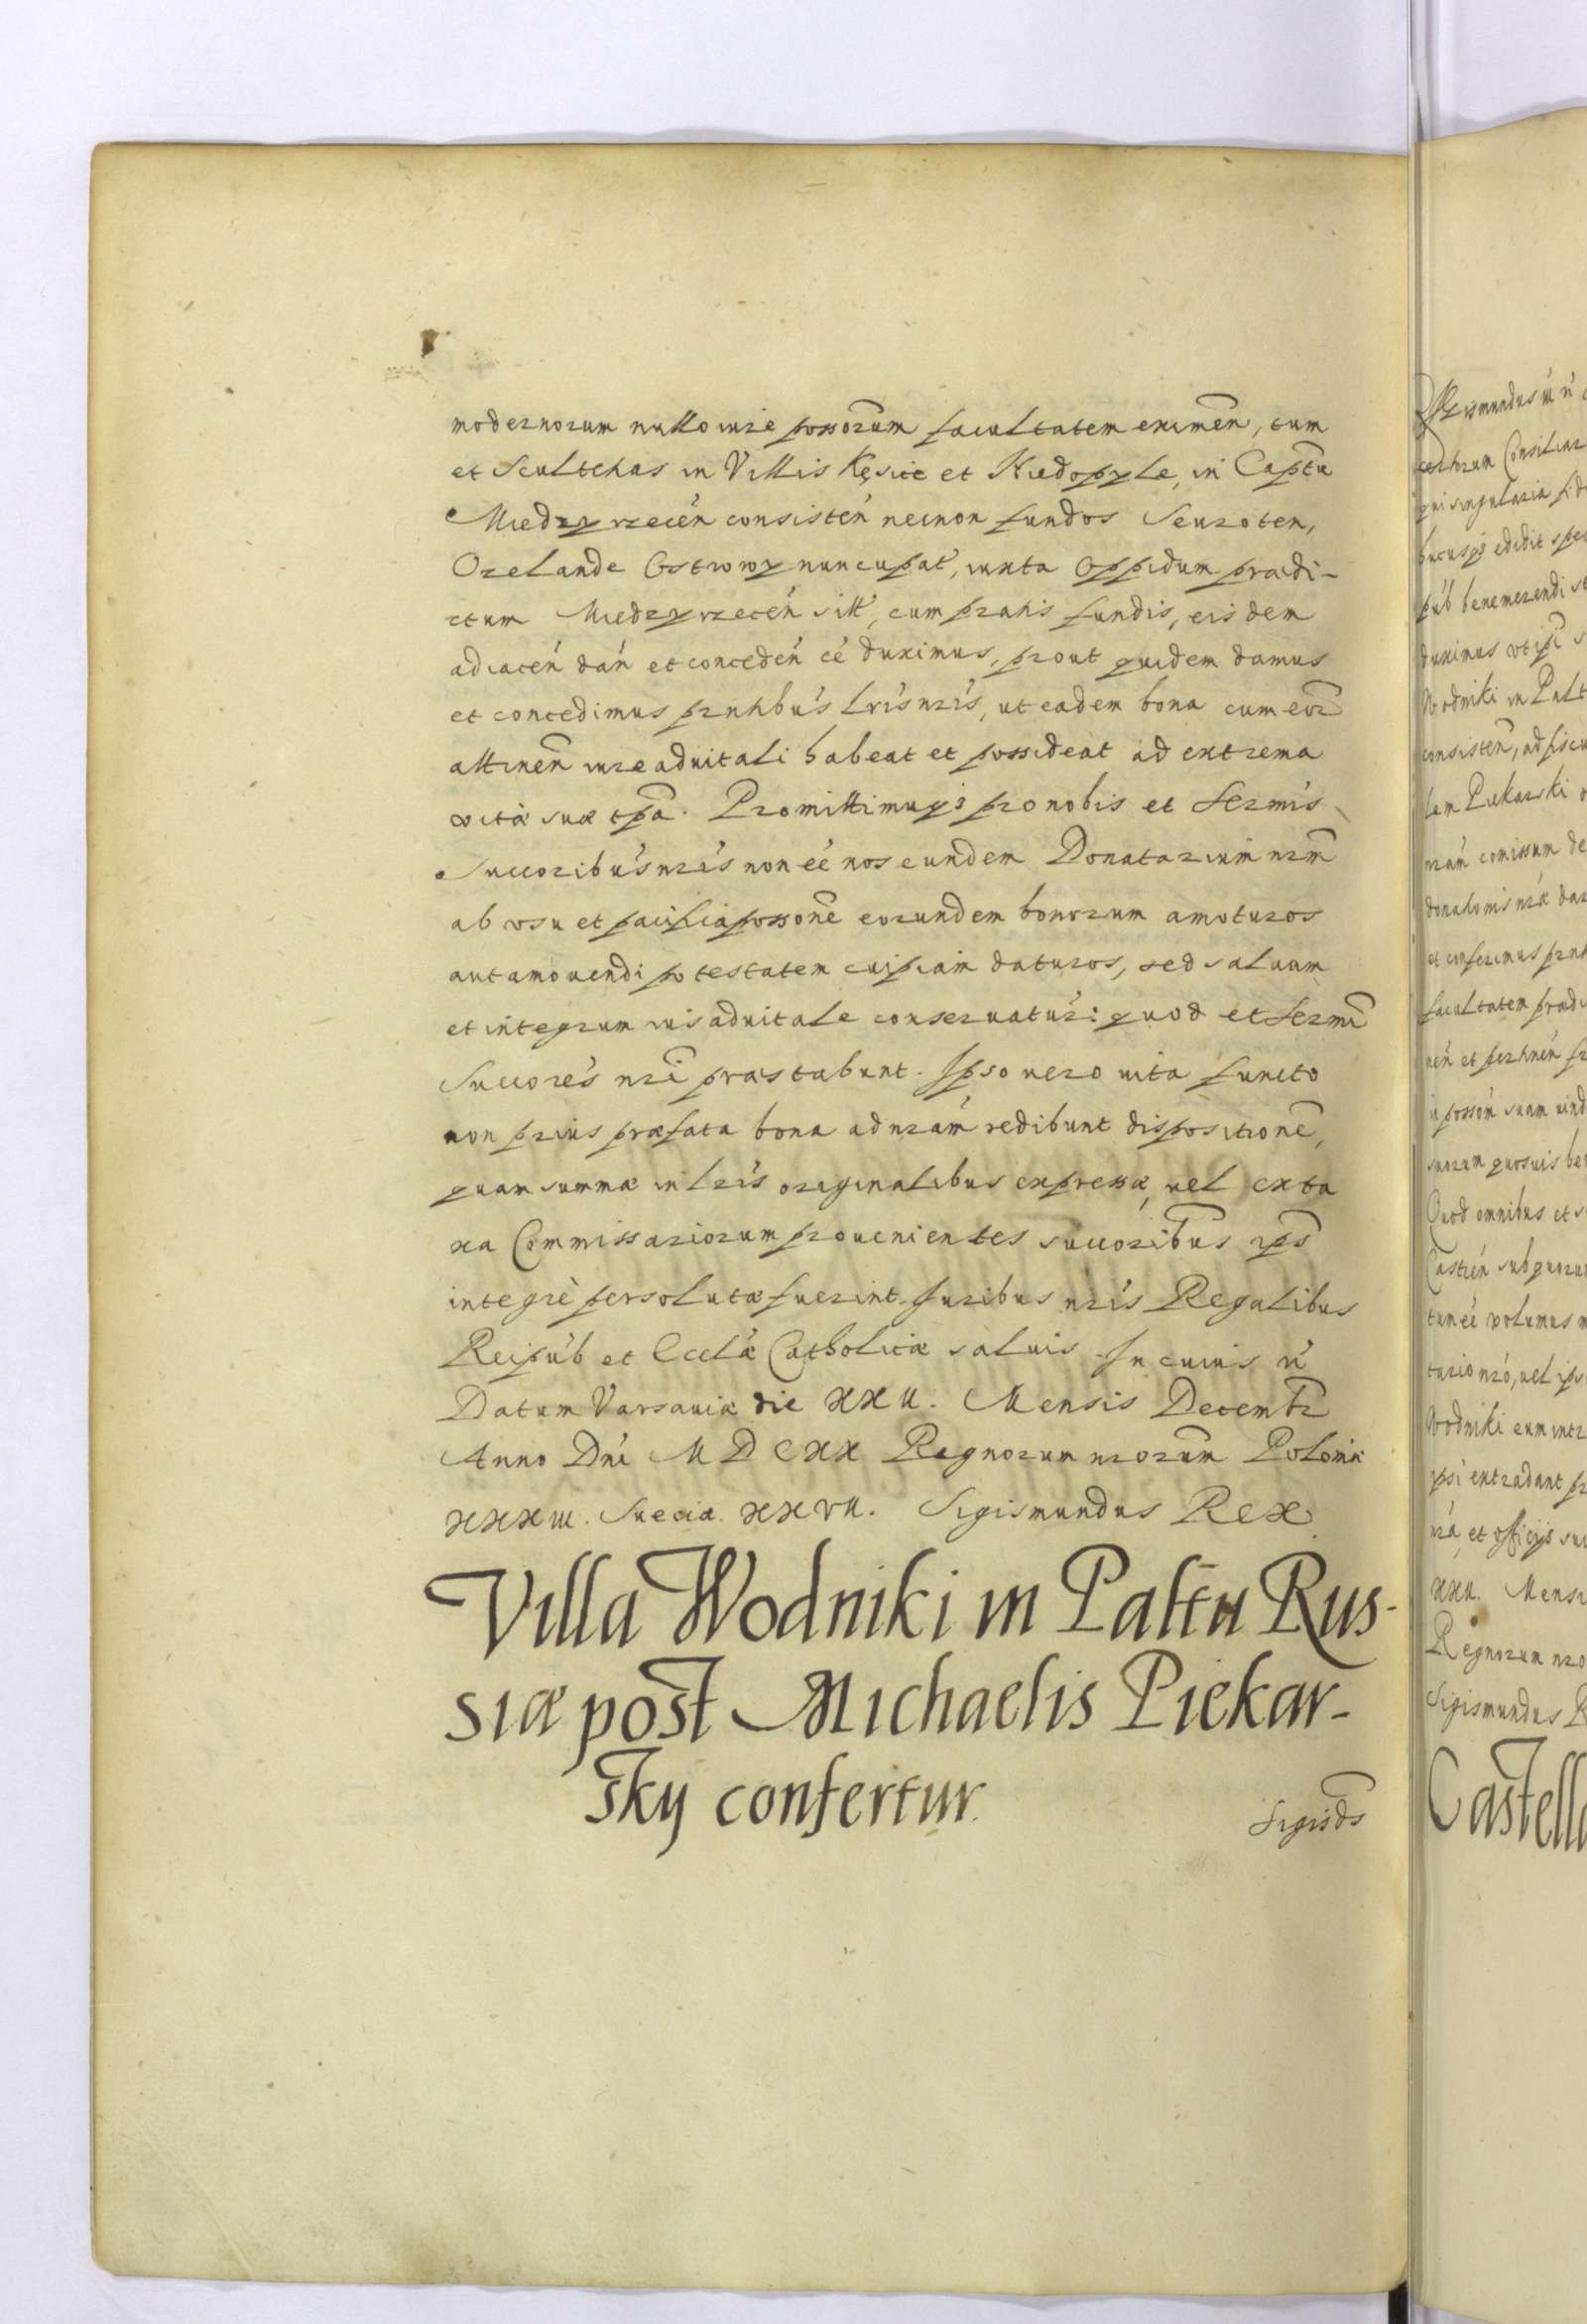 modernorum nullo iure possorum facultatem eximen, tum
et Scultetias in Villis Kęsice et Niedopyle, in Captu
Miedzyrzecen consisten necnon fundos Seuroten,
Ozelande Ostrowy nuncupat, iuxta Oppidum prædi-
ctum Miedzyrzecen sitt, cum pratis fundis, eisdem
adiacen dan et conceden ee duximus, prout quidem damus
et concedimus pntibus lris nris, ut eadem bona cum eor
attinen iure aduitali habeat et possideat ad extrema
vitæ suæ tpa. Promittimusq pro nobis et Sermis
Succoribus nris non ee nos eundem Donatarium nrm
ab vsu et pacifica possone eorundem bonorum amoturos
aut amouendi potestatem cuipiam daturos, sed saluum
et integrum ius aduitale conseruatur: quod et Sermi
Succores nri præstabunt. Ipso uero uita functo
non prius præfata bona ad nram redibunt dispositione,
quam summæ in lris originalibus expressæ, uel ex ta
xa Commissariorum prouenientes succoribus ips
integrè persolutæ fuerint. Iuribus nris Regalibus
Reipub et Ecclæ Catholicæ saluis. In cuius rei
Datum Varsauiæ die XXII. Mensis Decembr
Anno Dni MDCXX Regnorum nrorum Poloniæ
XXXIII. Sueciæ. XXVII. Sigismundus Rex
Villa Wodniki in Paltu Rus-
siæ post Michaelis Piekar-
sky confertur.
Sigisds
Sigismundus
Consiliar
qui singularia fid
hucusq edidit spec
pub benemerendi st
duximus vt ipi s
Wodniki in Palt
consisten, ad fiscu
lem Piekarski
nram comissum de
donationis nræ dar
et conferimus pnt
facultatem prædi
nen et pertinen
in possom suam uind
suorum quosuis ben
Quod omnibus et s
Castren sub quorum
tum ee volumus
tario nro, uel ips
Wodniki eum intr
ipsi extradant pr
nra et officijs su
XXII. Mensi
Regnorum nro
Sigismundus R
Castella